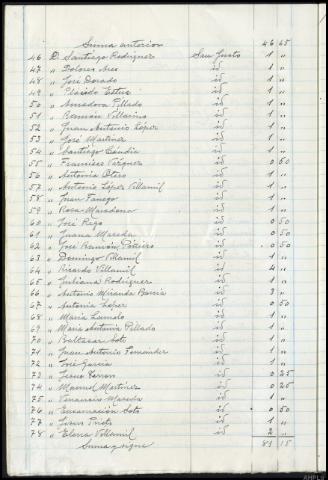 Suma anterior 46 65
46 D. Santiago Rodriguez San Justo 1 "
47 " Dolores Ares id 1 "
48 " José Dorado id 1 "
49 " Plácido id 1 "
50 " Amadora Pillado id 1 "
51 " Ramón Villarino id 1 "
52 " Juan Antonio López id 1 "
53 " José Martinez id 1 "
54 " Santiago id 1 "
55 " Francisco Vázquez id 0 50
56 " Antonia Otero id 1 "
57 " Antonio López Villamil id 1 "
58 " Juan Fanego id 1 "
59 " Rosa id 1 "
60 " José Rego id 0 50
61 " Juana id 0 50
62 " José Ramón id 0 50
63 " Domingo Villamil id 1 "
64 " Ricardo Villamil id 4 "
65 " Juliana Rodriguez id 1 "
66 " Antonio Miranda Garcia id "
67 " Antonia López id 0 50
68 " Maria id 1 "
69 " Maria Antonia Pillado id 1 "
70 " Baltasar Soto id 1 "
71 " Juan Antonio Fernandez id 1 "
72 " José Garcia id 1 "
73 " id 0 25
74 " Manuel Martinez id 0 25
75 " id 1 "
76 " Encarnación Soto id 0 50
77 " Prieto id 1 "
78 " Elena Villamil id 2 "
Suma y sigue 81 15
AHPLU